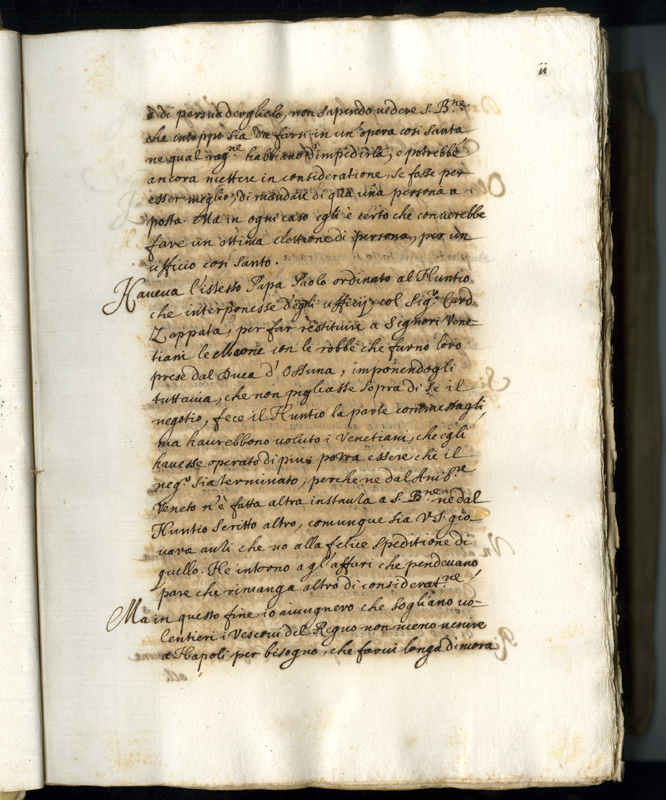 ii
è di persuaderglielo, non sapendo vedere S. B.ne
che intoppo sia da farsi in un'opera così santa
ne qual rag.ne habbiano d'impedirla, e potrebbe
ancora mettere in consideratione, se fosse per
esser meglio, di mandare di qua una persona a
posta. Ma in ogni caso egli è certo che converebbe
fare un ottima elettione di persona, per un
ufficio così santo.
Haveva l'istesso Papa Paolo ordinato al Nuntio
che interponesse degli ufficij col Sig.r Card.
Zappata, per far restituire a Signori Vene-
tiani le Maone con le robbe che furno loro
prese dal Duca d'Ossuna, imponendogli
tuttavia, che non pigliasse sopra di se il
negotio, fece il Nuntio la parte commessagli
ma haurebbono voluto i Venetiani, che egli
havesse operato di più potra essere che il
neg.o sia terminato, perche ne dal
Veneto n'è fatta altra instantia a S. B.ne ne dal
Nuntio scritto altro, comunque sia V.S. gio
vara alli che vo alla felice speditione di
quello. Ne intorno a gl'affari che pendevano
pare che rimanga altro di considerat.ne
Ma in questo fine io aiungnero che sogliano vo-
lentieri i Vescovi del Regno non meno venire
a Napoli per bisogno, che farvi longa dimora